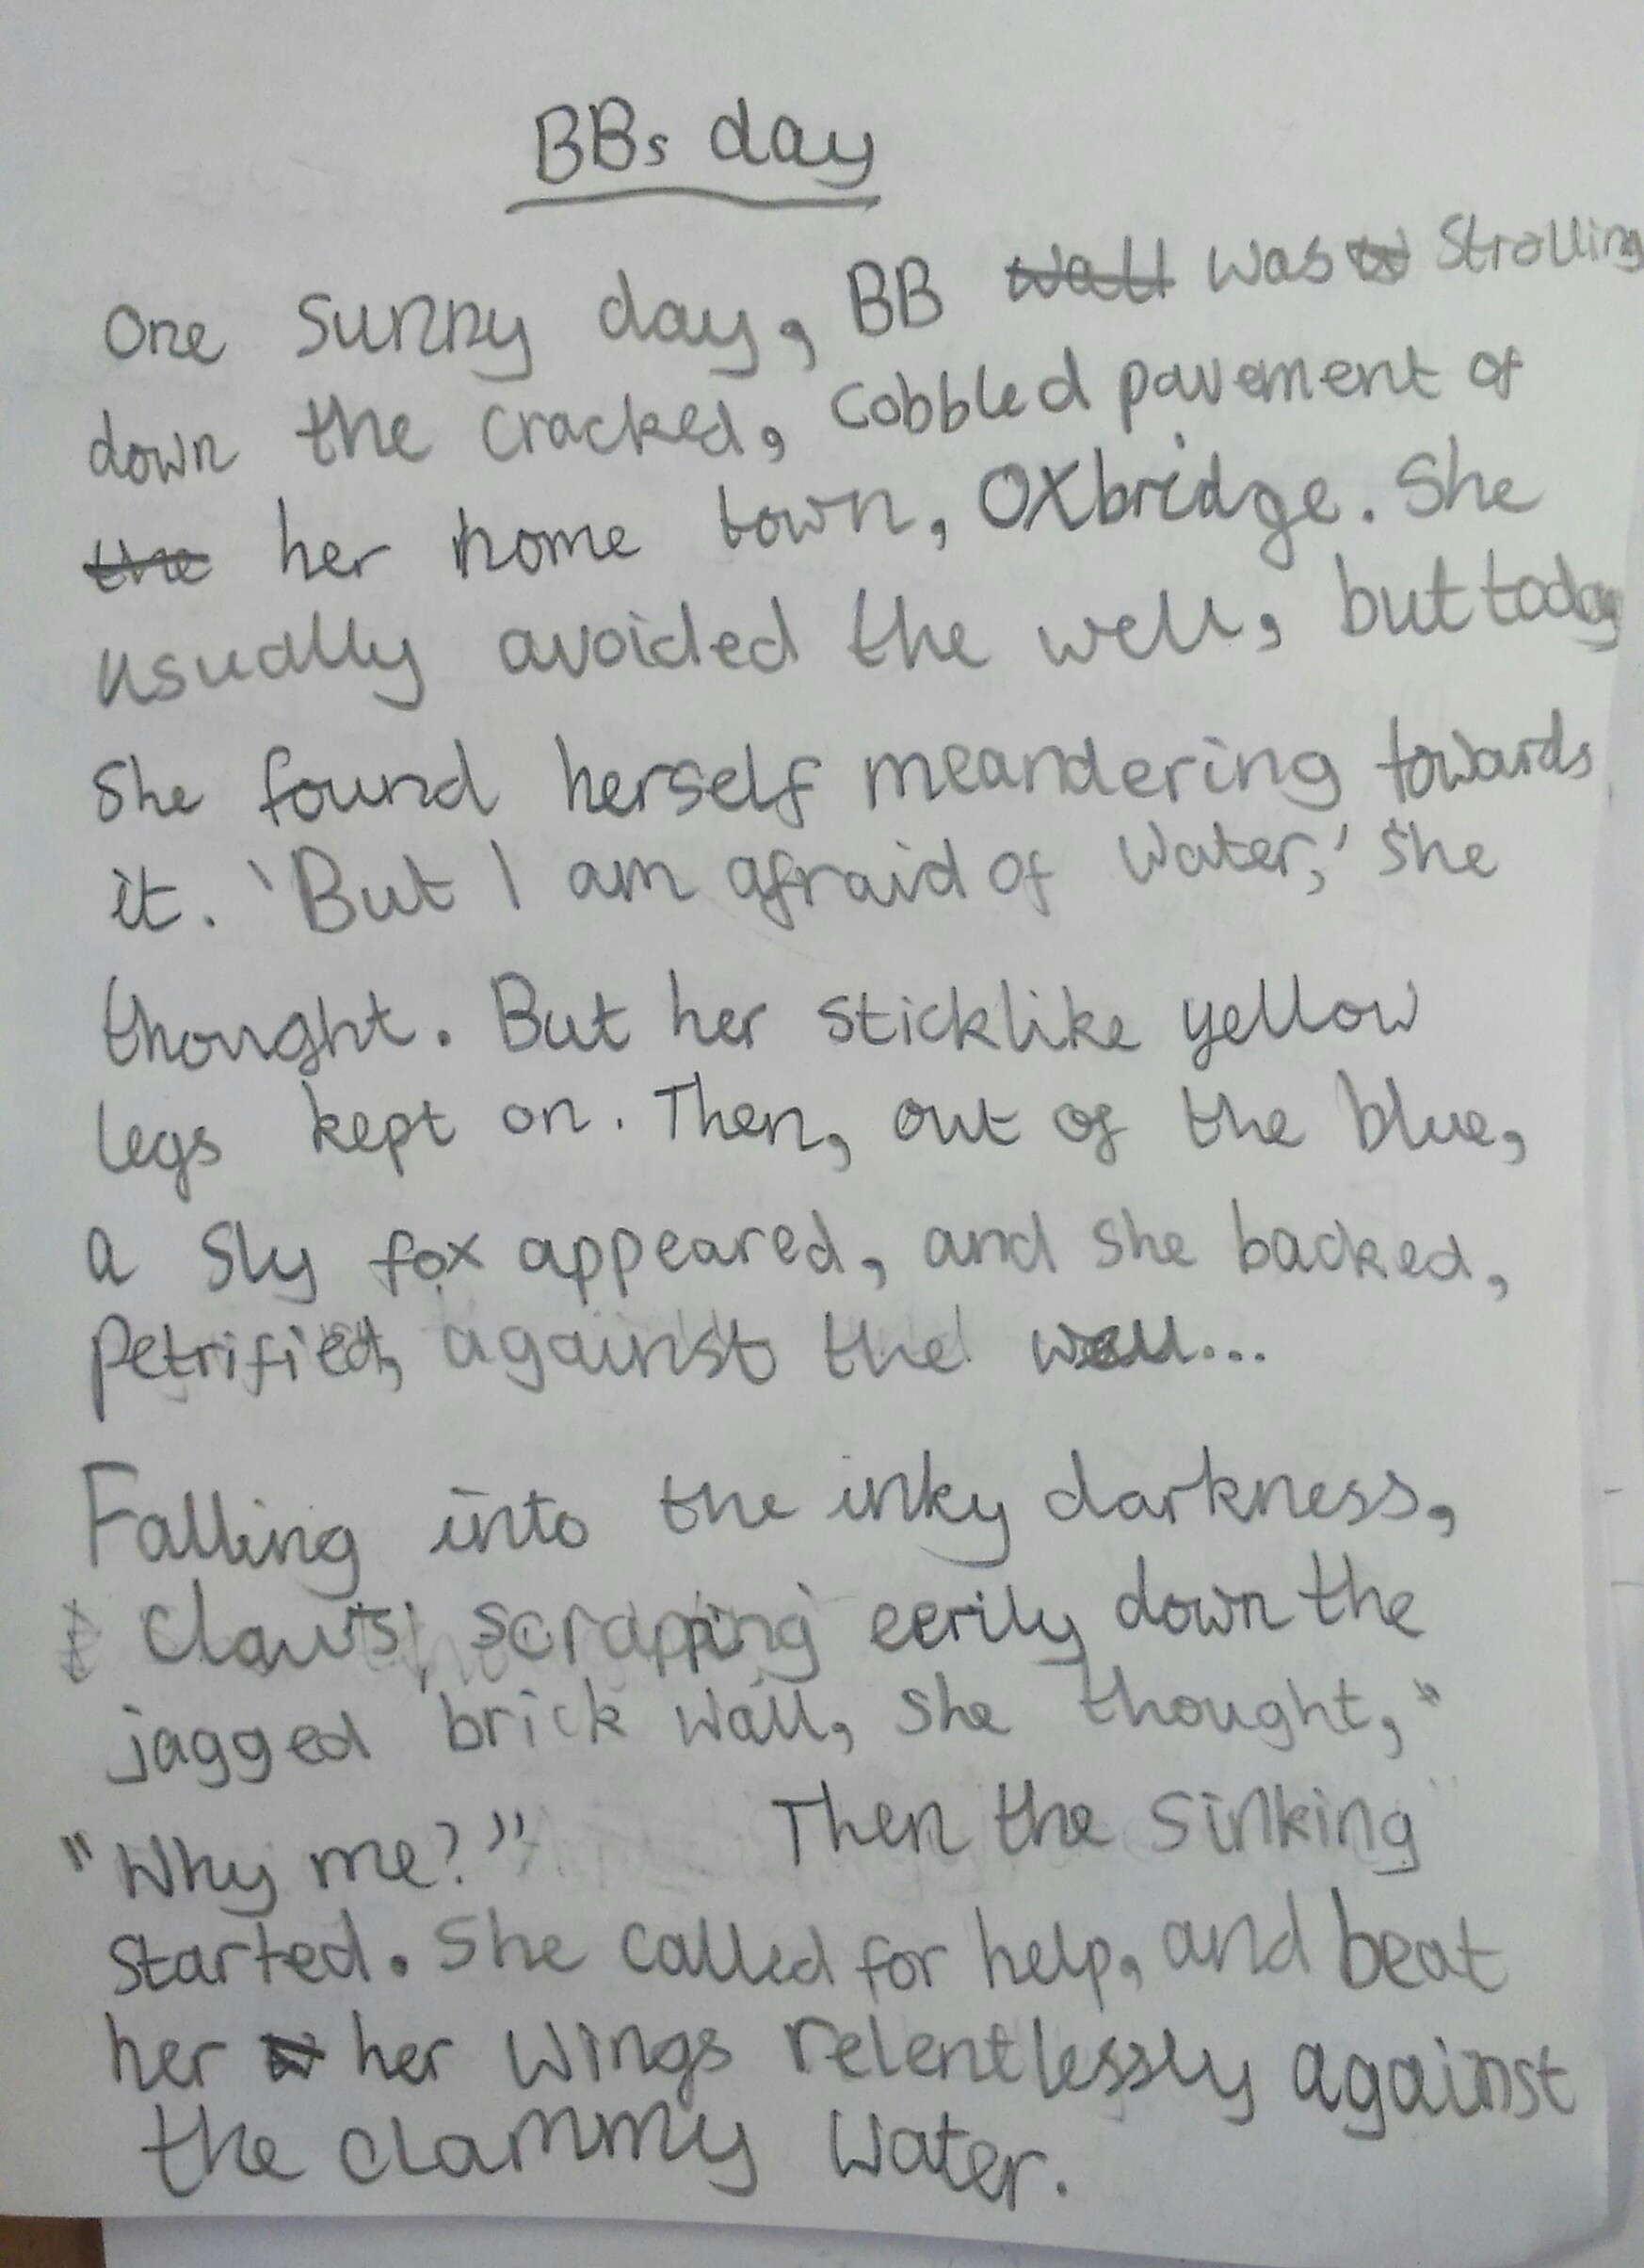 BBs day
One sunny day, BB was strolling
down the cracked, cobbled pavement of
her home town, Oxbridge. She
usually avoided the well, but today
she found herself meandering towards
it. 'But I am afraid of water,' she
thought. But her sticklike yellow
legs kept on. Then, out of the blue,
a sly fox appeared, and she backed,
petrified, against the well...
Falling into the inky darkness,
claws scraping eerily down the
jagged brick wall, she thought,"
"Why me?" Then the sinking
started. She called for help, and beat
her her wings relentlessly against
the clammy water.